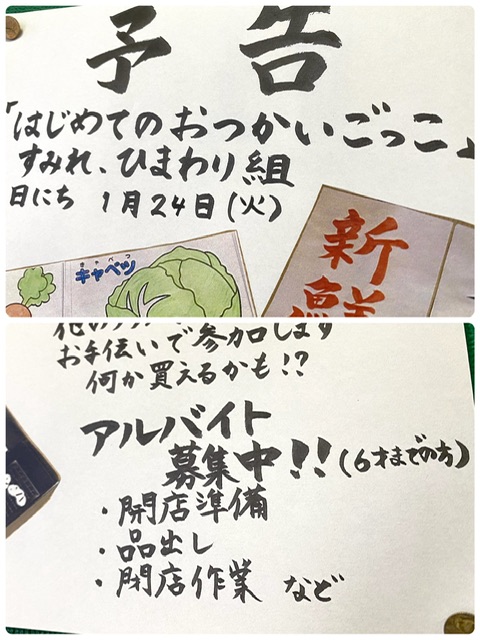 予告
「はじめてのおつかいごっこ」
すみれ、ひまわり組
日にち 1月24日(火)
キャベツ
キャベツ
新鮮
他のクラ
お手伝いで参加します
何か買えるかも!?
アルバイト
募集中!!(6才までの方)
・開店準備
・品出し
・閉店作業 など